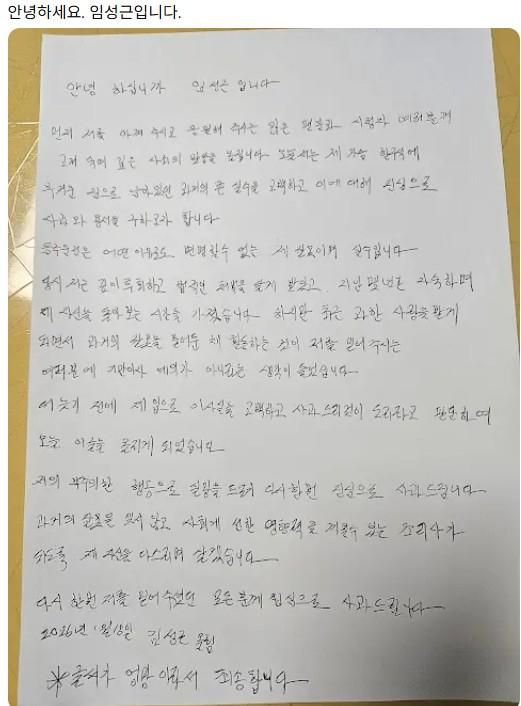 안녕하세요. 임성근입니다.
안녕 하십니까 임성근 입니다
먼저 저를 아껴 주시고 응원해 주시는 많은 팬분과 시청자 여러분께
고개 숙여 깊은 사죄의 말씀을 올립니다 오늘 저는 제 가슴 한구석에
무거운 짐으로 남아있던 과거의 큰 실수를 고백하고 이에 대해 진심으로
사과와 용서를 구하고자 합니다
음주운전은 어떤 이유로도 변명할수 없는 제 잘못이며 실수입니다
당시 저는 깊이 후회하고 법적인 처벌을 달게 받았고, 지난 몇년은 자숙하며
제 자신을 돌아보는 시간을 가졌습니다 하지만 최근 과한 사랑을 받게
되면서 과거의 잘못을 묻어둔 채 활동하는 것이 저를 믿어 주시는
여러분에 기만이자 예의가 아니라는 생각이 들었습니다
더 늦기 전에 제 입으로 이사실을 고백하고 사과 드리는것이 도리라고 판단하여
오늘 이 글을 올리게 되었습니다
저의 부주의한 행동으로 실망을 드려 다시한번 진심으로 사과드립니다
과거의 잘못을 잊지 않고 사회에 선한 영향력을 끼칠수 있는 조리사가
되도록 제 자신을 다스리며 살겠습니다
다시 한번 저를 믿어 주셨던 모든분께 진심으로 사과드립니다
2026년 1월 일 임성근 올림
※글씨가 엉망 이라서 죄송합니다